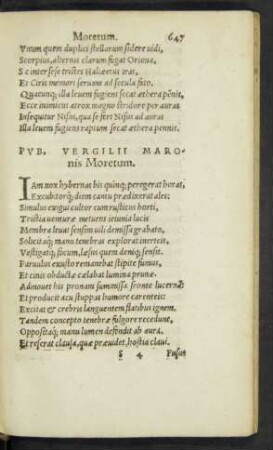 Moretum. 647
Vnum quem duplici stellarum sidere uidi,
Scorpius, alternis clarum fugat Oriona,
Sic inter sese tristes Haliaetus iras,
Et Ciris memori seruant ad secula fato.
Quacunq; illa leuem fugiens secat æthera pennis,
Ecce inimicus atrox magno stridore per auras
Insequitur Nisus, qua se fert Nisus ad auras
Illa leuem fugiens raptim secat æthera pennis.
PVB. VERGILII MARO-
nis Moretum.
IAm nox hybernas bis quinq; peregerat horas,
Excubitorq; diem cantu prædixerat ales:
Simulus exigui cultor cum rusticus horti,
Tristia uenturæ metuens ieiunia lucis
Membra leuat sensim uili demissa grabato,
Solicitaq; mano tenebras explorat inerteis,
Vestigatq; focum, læsus quem denıq; sensit.
Paruulus exusto remanebat stipite fumus,
Et cinis obductæ cælabat lumina prunæ.
Admouet his pronam summissa fronte lucernã:
Et producit acu stuppas humore carenteis:
Excitat et crebris languentem flatibus ignem.
Tandem concepto tenebræ fulgore recedunt,
Oppositaq; manu lumen defendit ab aura,
Et reserat clausa, quæ præuidet, hostia claui.
§ 4 Fusus